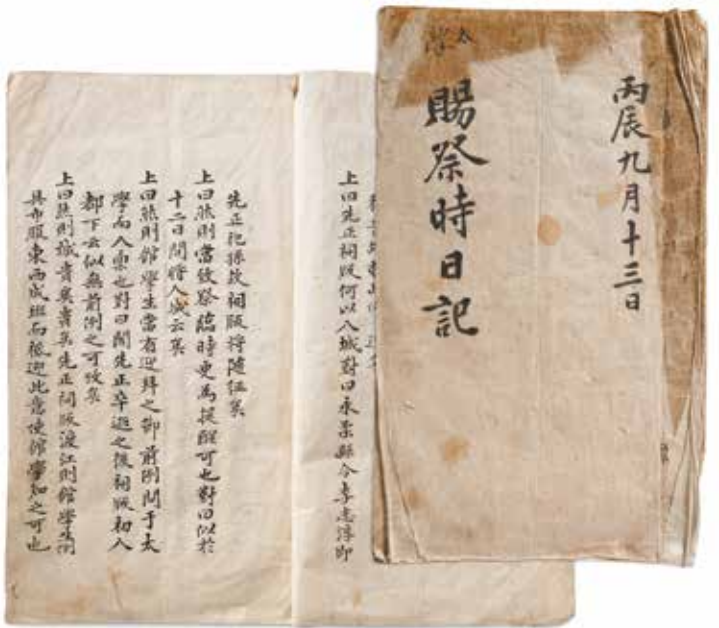 丙辰九月十三日
賜祭時日記
太學
上曰先正祠版何以入城對曰永柔縣令李志淳卽
先正祀孫故祠版將隨往矣
上曰然則當致祭臨時更爲提醒可也對曰似於
十二日間將入城云矣
上曰然則館學生當有迎拜之節前例問于太
學而入稟也對曰聞先正卒逝之後祠版初入
都下云似無前例之可攷矣
上曰然則誠貴矣貴矣先正祠版渡江則館學儒
具巾服東西成班而祗迎此意使館學知之可也